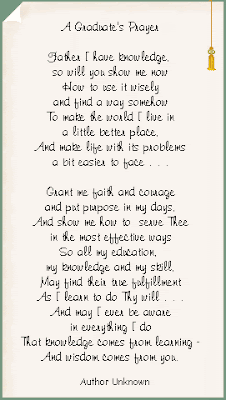 A Graduate's Prayer
Father I have knowledge,
so will you show me now
How to use it wisely
and find a way somehow
To make the world I live in
a little better place,
And make life with its problems
a bit easier to face . . .
Grant me faith and courage
and put purpose in my days,
And show me how to serve Thee
in the most effective ways
So all my education,
my knowledge and my skill,
May find their true fulfillment
As I learn to do Thy will . . .
And may I ever be aware
in everything I do
That knowledge comes from learning -
And wisdom comes from you.
Author Unknown